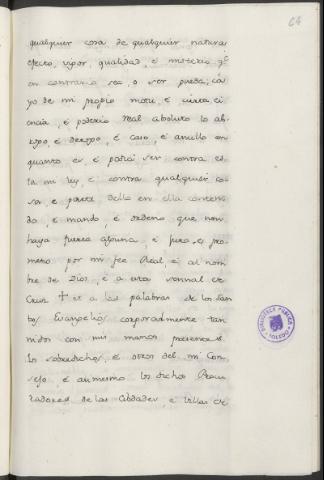 64
qualquier cosa de qualquier natura
efecto, vigor, qualidad, é misterio q.e
en contrario sea, o ser pueda; ca
yo de mi propio motu, é cierta ci
encia, é poderio Real absoluto lo ab-
rogo, é derogo, é caso, é anullo en
quanto es, é podria ser contra es-
ta mi ley, é contra qualquier co-
sa, é parte dello en ella conteni-
do, é mando, é ordeno que non
haya fuerza alguna, é juro, é pro-
meto por mi fee Real, é al nom-
bre de Dios, é a esta sennal de
Cruz † é a las palabras de los San-
tos Evangelios corporalmente tan-
nidos con mis manos presentes
los sobredichos, é otros del mi Con-
sejo, é asimesmo los dichos Procu-
radores de las Cibdades, é Villas de
BIBLIOTECA PUBLICA
TOLEDO